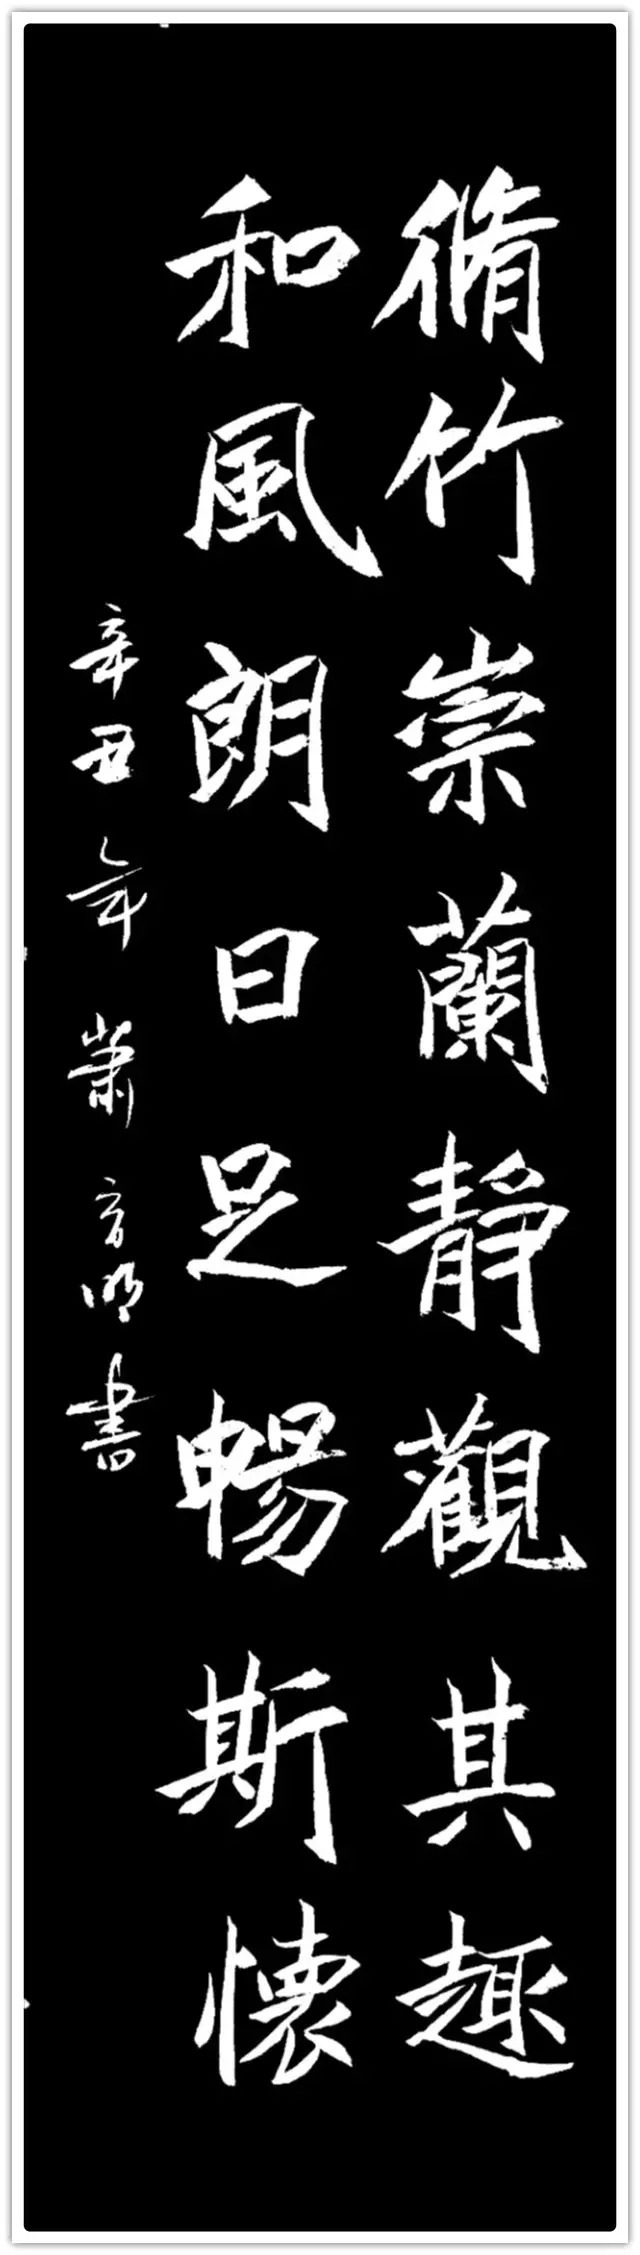 脩竹崇蘭靜觀其趣
和風朗日足暢斯懷
辛丑年蕭言明書